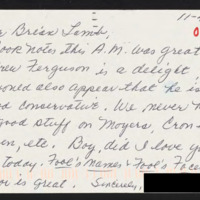 11-
Brian Lamb,
ook notes this A.M. was great
rew Ferguson is a delight
ould also appear that he is
od conservative. We never
good stuff on Moyers, Cron
en, etc. Boy, did I love yo
today. Fool's Names & Fool's Faces
or is great. Sincerely,